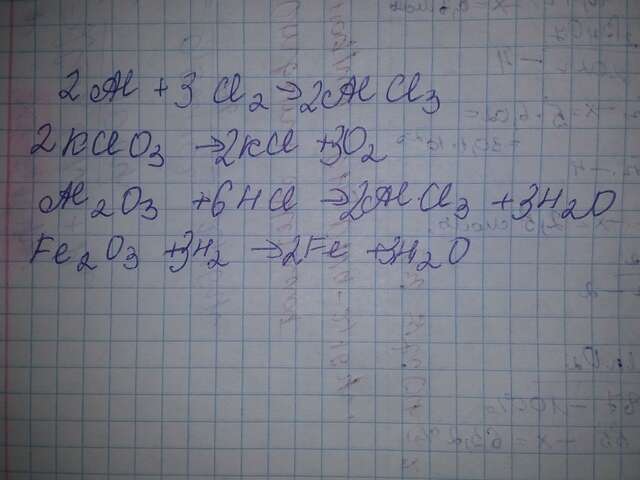 2Al + 3Cl₂ → 2AlCl₃
2KClO₃ → 2KCl + 3O₂
Al₂O₃ + 6HCl → 2AlCl₃ + 3H₂O
Fe₂O₃ + 3H₂ → 2Fe + 3H₂O